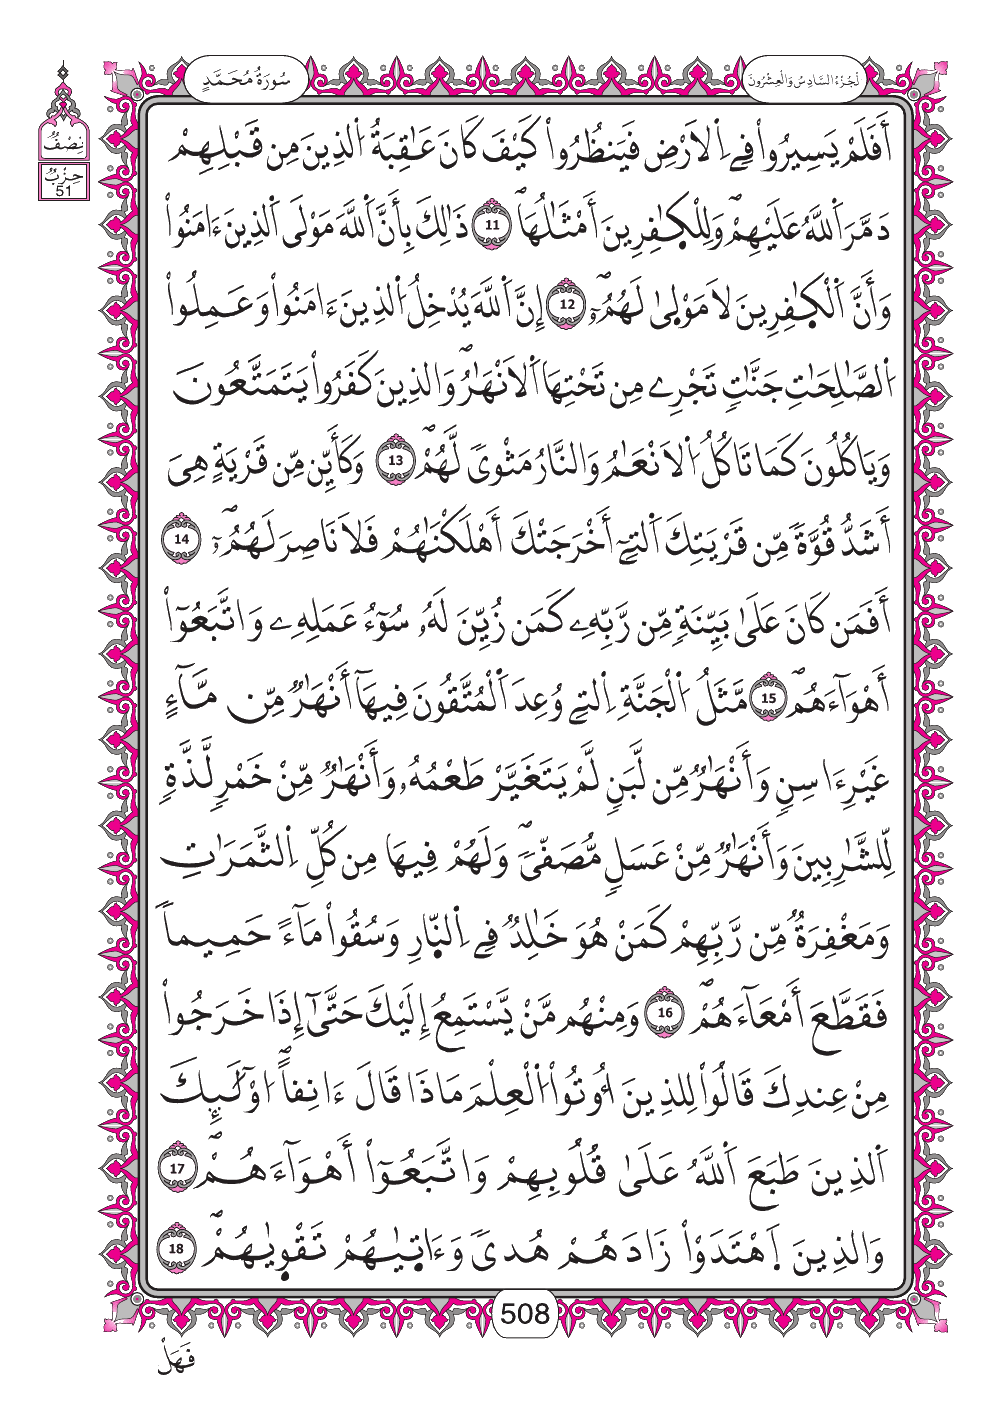 سُورَةُ مُحَمَّدٍ
لْجُزْءُ السَّادِسُ وَالْعِشْرُونَ
نِصْفُ
حِزْبُ
51
أَفَلَمْ يَسِيرُواْ فِے اِ۬لَارْضِ فَيَنظُرُواْ كَيْفَ كَانَ عَٰقِبَةُ اُ۬لذِينَ مِن قَبْلِهِمْ
دَمَّرَ اَ۬للَّهُ عَلَيْهِمْۖ وَلِلْكٰ۪فِرِينَ أَمْثَٰلُهَاۖ 11 ذَٰلِكَ بِأَنَّ اَ۬للَّهَ مَوْلَى اَ۬لذِينَ ءَامَنُواْ
وَأَنَّ اَ۬لْكٰ۪فِرِينَ لَا مَوْل۪ىٰ لَهُمُۥٓۖ 12 إِنَّ اَ۬للَّهَ يُدْخِلُ اُ۬لذِينَ ءَامَنُواْ وَعَمِلُواْ
اُ۬لصَّٰلِحَٰتِ جَنَّٰتٖ تَجْرِے مِن تَحْتِهَا اَ۬لَانْهَٰرُۖ وَالذِينَ كَفَرُواْ يَتَمَتَّعُونَ
وَيَاكُلُونَ كَمَا تَاكُلُ اُ۬لَانْعَٰمُ وَالنَّارُ مَثْويٗ لَّهُمْۖ 13 وَكَأَيِّن مِّن قَرْيَةٍ هِيَ
أَشَدُّ قُوَّةٗ مِّن قَرْيَتِكَ اَ۬لتِےٓ أَخْرَجَتْكَ أَهْلَكْنَٰهُمْ فَلَا نَاصِرَ لَهُمُۥٓۖ 14
أَفَمَن كَانَ عَلَىٰ بَيِّنَةٖ مِّن رَّبِّهِۦ كَمَن زُيِّنَ لَهُۥ سُوٓءُ عَمَلِهِۦ وَاتَّبَعُوٓاْ
أَهْوَآءَهُمۖ 15 مَّثَلُ اُ۬لْجَنَّةِ اِ۬لتِے وُعِدَ اَ۬لْمُتَّقُونَ فِيهَآ أَنْهَٰرٞ مِّن مَّآءٍ
غَيْرِ ءَاسِنٖ وَأَنْهَٰرٞ مِّن لَّبَنٖ لَّمْ يَتَغَيَّرْ طَعْمُهُۥ وَأَنْهَٰرٞ مِّنْ خَمْرٖ لَّذَّةٖ
لِّلشَّٰرِبِينَ وَأَنْهَٰرٞ مِّنْ عَسَلٖ مُّصَفّيٗۖ وَلَهُمْ فِيهَا مِن كُلِّ اِ۬لثَّمَرَٰتِ
وَمَغْفِرَةٞ مِّن رَّبِّهِمْ كَمَنْ هُوَ خَٰلِدٞ فِے اِ۬لنّ۪ارِ وَسُقُواْ مَآءً حَمِيماٗ
فَقَطَّعَ أَمْعَآءَهُمْۖ 16 وَمِنْهُم مَّنْ يَّسْتَمِعُ إِلَيْكَ حَتَّىٰٓ إِذَا خَرَجُواْ
مِنْ عِندِكَ قَالُواْ لِلذِينَ أُوتُواْ اُ۬لْعِلْمَ مَاذَا قَالَ ءَانِفاًۖ ا۟وْلَٰٓئِكَ
اَ۬لذِينَ طَبَعَ اَ۬للَّهُ عَلَىٰ قُلُوبِهِمْ وَاتَّبَعُوٓاْ أَهْوَآءَهُمْۖ 17
وَالذِينَ اَ۪هْتَدَوْاْ زَادَهُمْ هُديٗ وَءَات۪يٰهُمْ تَقْو۪يٰهُمْۖ 18
508
فَهَلْ